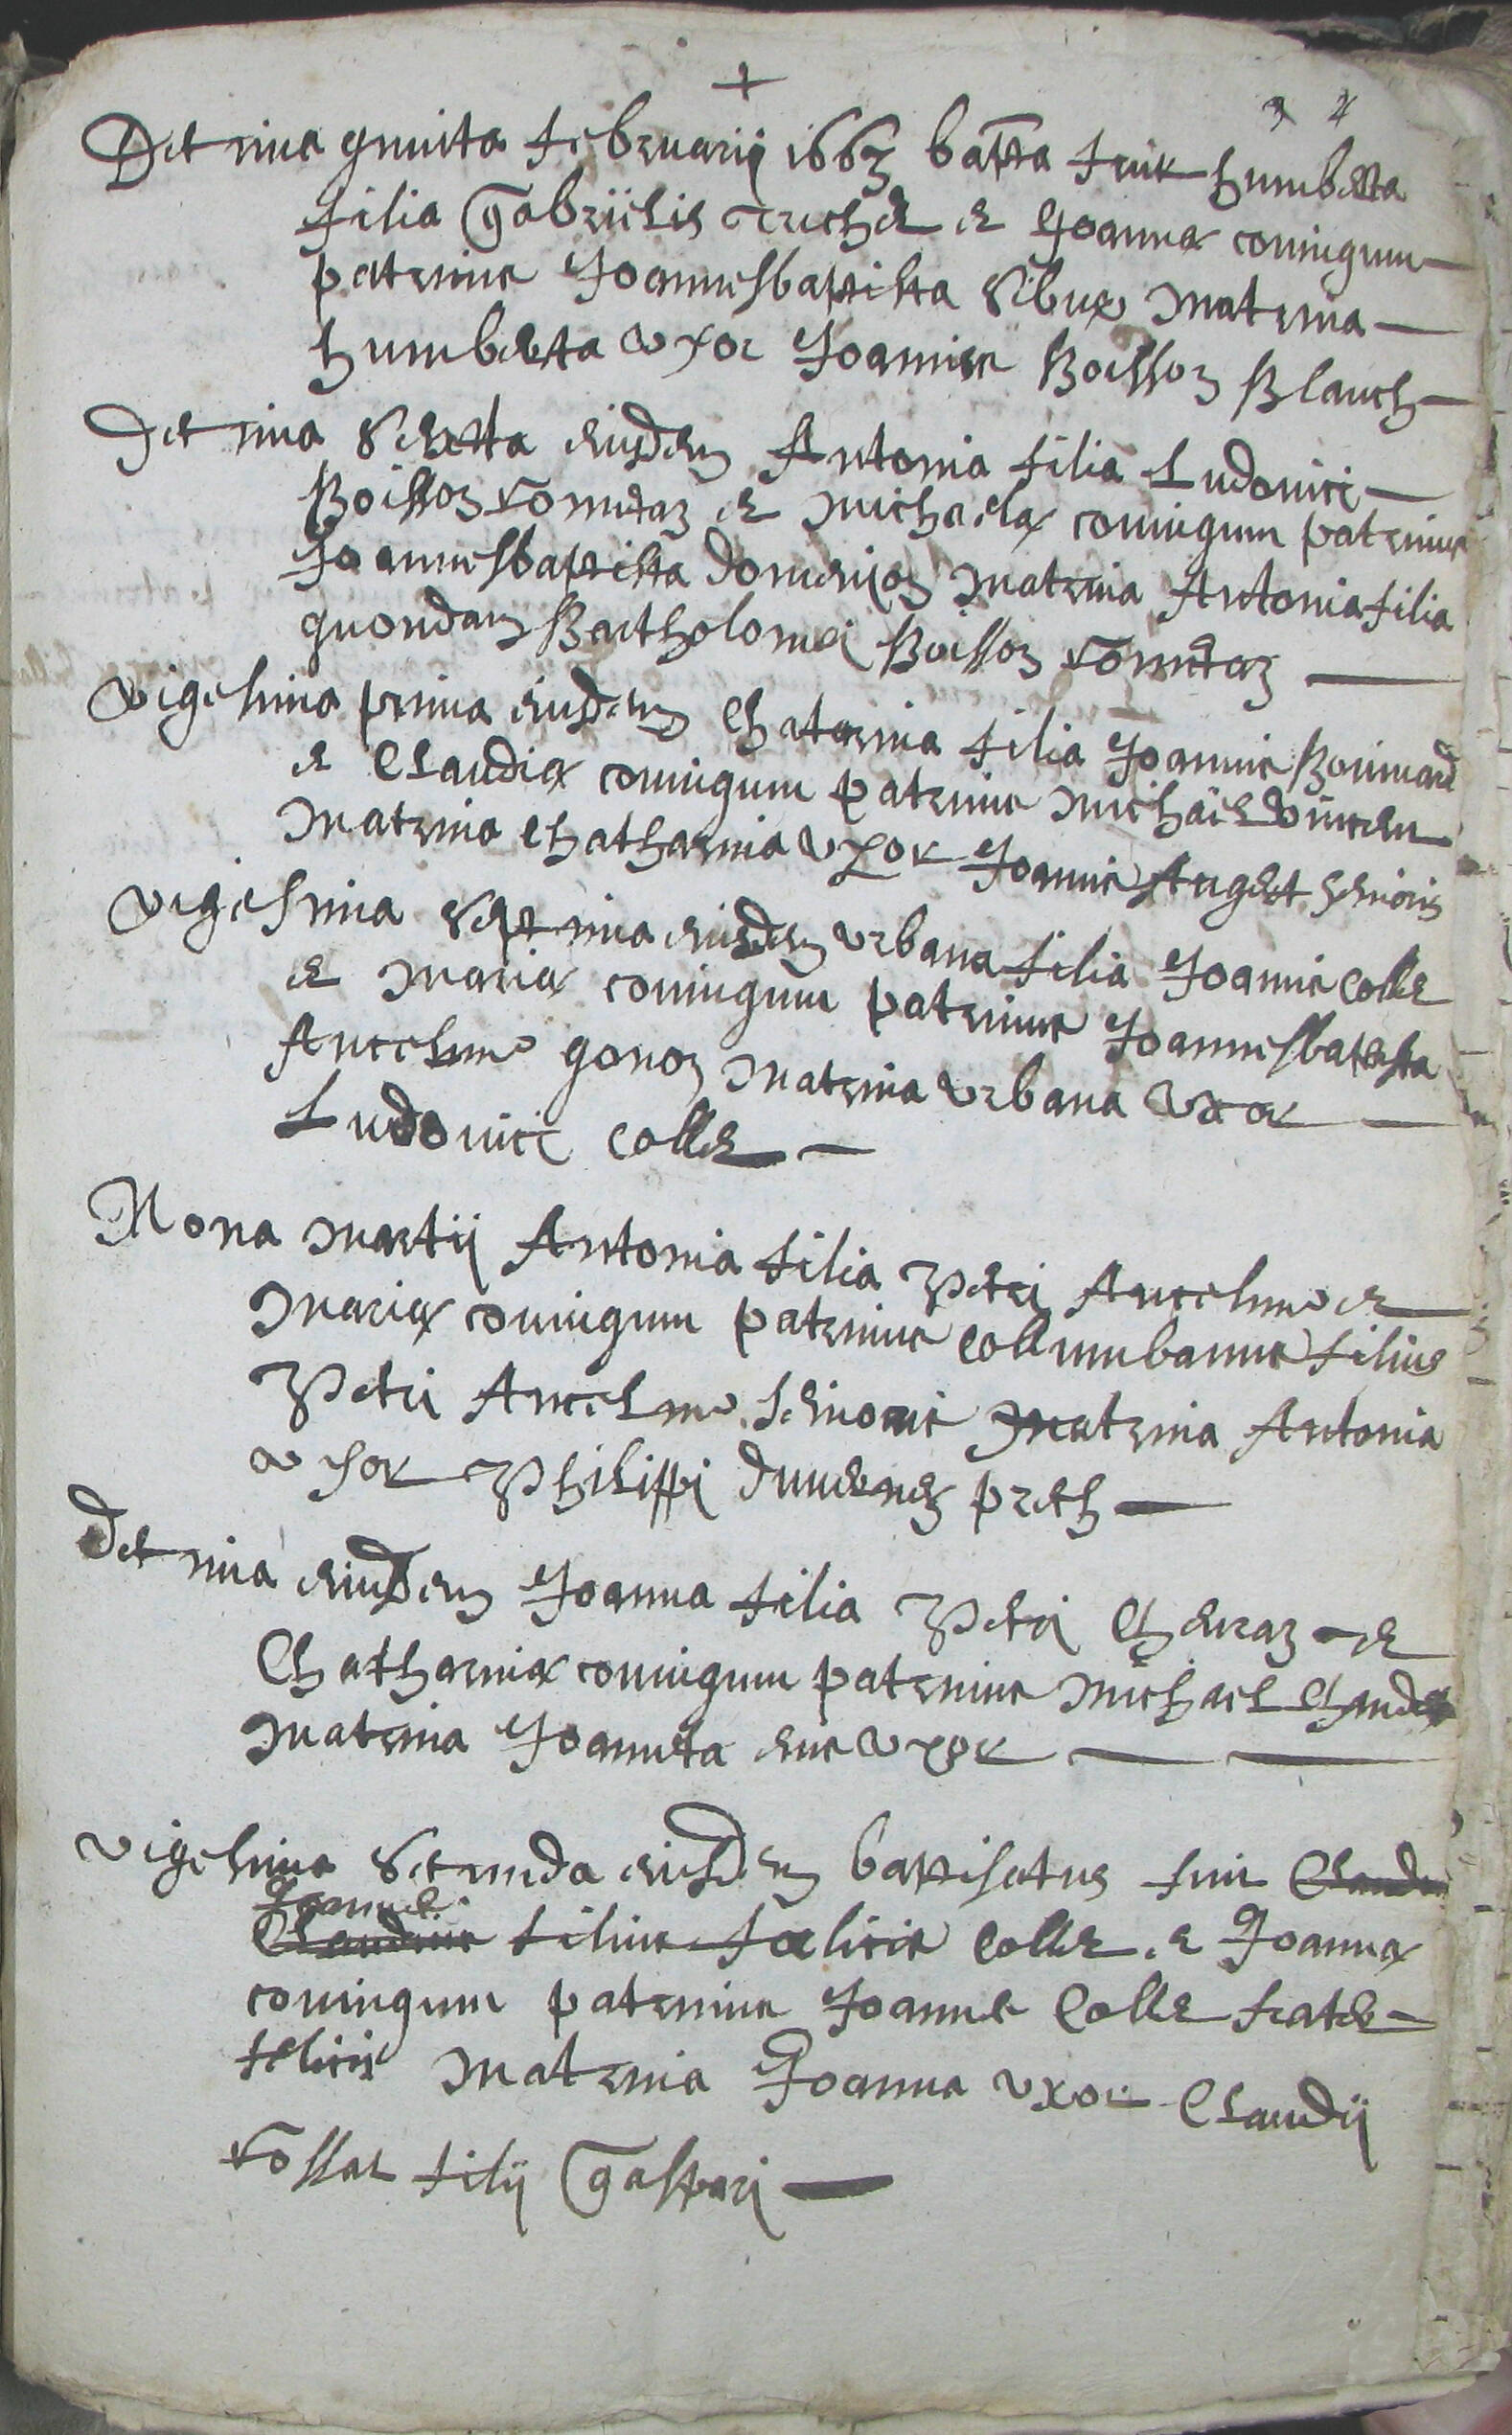 +
Decima quinta februarii 1663 bapta fuit humberta
filia Gabrielis et Joannæ coniugum
patrinus Joannesbaptista matrina
humberta uxor Joannis Boisson Blanch
Decima sexta eiusdem Antonia filia Ludovici
Boisson et Michaelæ coniugum patrinus
Joannesbaptista matrina Antonia filia
quondam Bartholomei Boisson
Vigesima prima eiusdem Chatarina filia Joannis
et Claudiæ coniugum patrinus Michael
matrina Chatharina uxor Joannis Auget senioris
Vigesima septima eiusdem Urbana filia Joannis Colle
et Mariæ coniugum patrinus Joannesbatista
Ancelmo gonon matrina Urbana uxor
Ludovici Colle
Nona Martii Antonia filia Petri Ancelmo et
Mariæ coniugum patrinus Collumbanus filius
Petri Ancelmo senioris matrina Antonia
uxor Philippi
Decima eiusdem Joanna filia Petri et
Chatharinæ coniugum patrinus Michael
matrina Joanneta eius uxor
Vigesima secunda eiusdem baptisatus fuit
Joannes filius fœlicis Colle et Joannæ
coniugum patrinus Joannes Colle frater
felicis matrina Joanna uxor Claudii
filii Gaspari